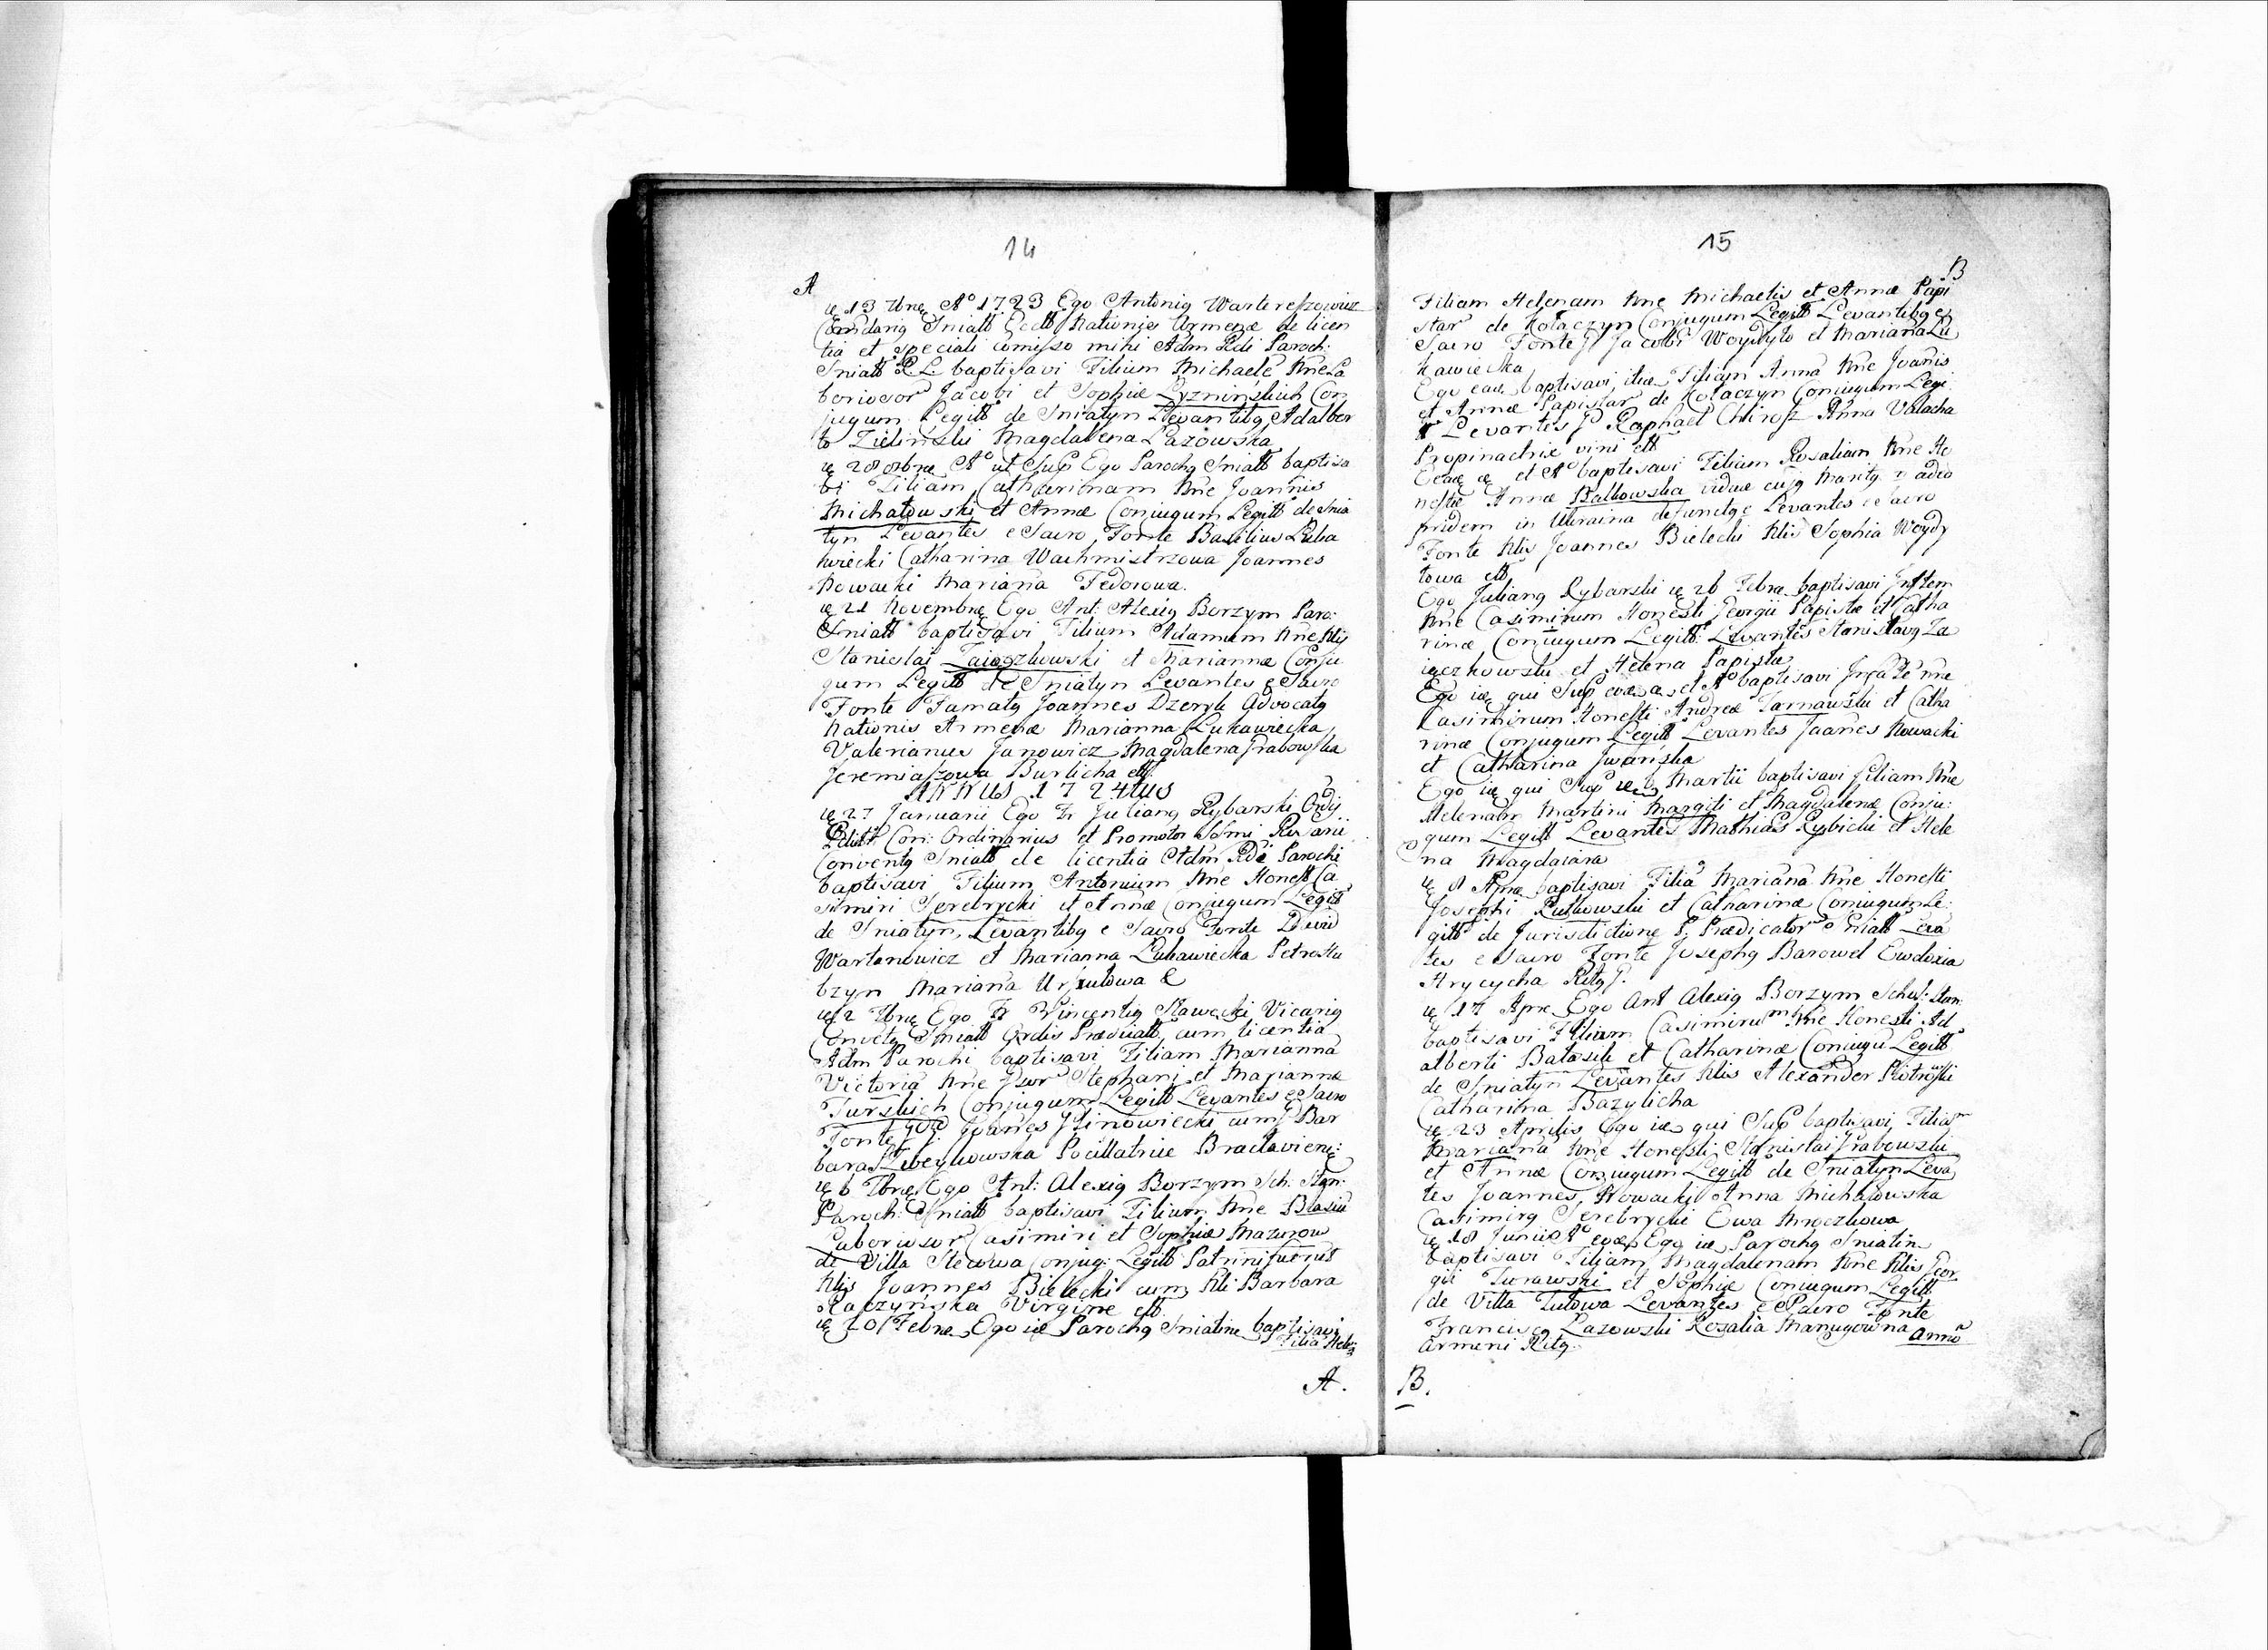 14
A
13 7bris Aº 1723 Ego Antonig Warterefzowicz
Comdarig Sniatt Eccl Nationis Armenæ de licen
tia et speciali comifso mihi Adm Rdi Paroch:
Sniatt R. L. baptisavi Filium Michaelē nne La
boriosor Jacobi et Sophiæ Lyznińskich Con
jugum Legitt de Sniatyn Levantibg Adalber
to Zieliński Magdalena Lazowska
28 8brıs Aº ut Sup Ego Parochg Sniatt baptisa
vi Filiam Catharinam nne Joannis
Michałowski et Annæ Conjugum Legitt de Snia
tyn Levantes e Sacro Fonte Basilius Luka
wiecki Catharina Wachmistrzowa Joannes
Nowacki Mariana Fedorowa.
21 Novembris Ego Ant: Alexig Borzym Paro:
Sniatt baptisavi Filium Adamum nne Nlis
Stanislai Zaiączkowski et Mariannæ Conju
gum Legitt de Sniatyn Levantes e Sacro
Fonte Famatg Joannes Dzeryk Advocatg
Nationis Armenæ Marianna Lukawiecka
Valerianus Janowicz Magdalena Grabowska
Jeremiaszowa Burlicha ett
ANNUS 1724tus
27 Januarii Ego Fr Juliang Rybarski Ordis
Con: Ordinarius et Promotor Ssmi Rosarii
Conventg Sniatt de licentia Adm Rdi Parochi
baptisavi Filium Antonium nne Honest Ca
simiri Serebrycki et Annæ Conjugum Legitt
de Sniatyn, Levantibg e Sacro Fonte David
Wartanowicz et Marianna Lukawiecka Petrosiu
bzyn Mariana
2 7bris Ego Fr Vincentig Sławecki Vicarig
Convetg Sniatt Ordis Prædicatt cum licentia
Adm Parochi baptisavi Filiam Mariannā
Victoriā nne Stephani et Mariannæ
Turskich Conjugum Legitt Levantes e Sacro
Fonte Joanes cum Bar
bara Pocillatrice Braclaviens:
6 7bris Ego Ant: Alexig Borzym Sch. Stan:
Paroch: Sniatt baptisavi Filium nne Blasiū
Laboriosor Casimiri et Sophiæ Mazurow
de Villa Stecowa Conjug: Legitt Patrini fuerūt
Nlis Joannes Bielecki cum Nli Barbara
Raczyńska Virgine ett
20 Febris Ego ide Parochg Sniatine baptisavi
Filiā Hele
A.
15
B
Filiam Helenam nne Michaelis et Annæ Papi
star de Kołaczyn Conjugum Legitt Levantibg e
Sacro Fonte Jacobi Woydyło et Mariana Lu
kawiecka
Ego baptisavi, Filiam Anna nne Joanis
et Annæ Papistar de Kołaczyn Conjugum Legi
Levantes Raphael Anna Valacha
Propinatrix vini ett
et Aº baptisavi Filiam Rosaliam nne Ho
nestæ Annæ Balkowska viduæ cujg Maritg adeo
pridem in Ukraina defunctg e Levantes e Sacro
Fonte Nlis Joannes Bielecki Nlis Sophia Woydy
towa ett
Ego Juliang Rybarski 26 Febris baptisavi Inftem
nne Casimirum Honesti Georgii Papistæ et Catha
rinæ Conjugum Legitt: Levantes Stanislavg Za
iączkowski et Helena Papista
Ego ide qui Sup et Aº baptisavi nne
Casimirum Honesti Andreæ Tarnawski et Catha
rinæ Conjugum Legitt Levantes Joanes Nowacki
et Catharina Jwańska
Ego ide qui Sup Martii baptisavi filiam nne
Helenam Martini Margiti et Magdalenæ Conju:
gum Legitt Levantes Mathias Rybicki et Hele
na Magdaiana
8 Apris baptisavi Filiā Marianā nne Honesti
Josephi Rutkowski et Catharinæ Conjugum Le:
gitt de Jurisdictione P. Prædicator Sniatt Leva
tes e Sacro Fonte Josephg Barowel Ewdoxia
Hrycycha Ritg
17 Apris Ego Ant Alexig Borzym Schol: Stan:
baptisavi Filium Casimirum nne Honesti Ad
alberti et Catharinæ Conjugū Legitt
de Sniatyn Levantes Nlis Alexander Piotrōski
Catharina Bazylicha
23 Aprilis Ego ide qui Sup baptisavi Filiam
Marianā nne Honesti Stanislai Grabowski
et Annæ Conjugum Legitt de Sniatyn Levā
tes Joannes Nowacki Anna Michałowska
Casimirg Serebrycki Ewa Mroczkowa
18 Junii Aº Ego ide Parochg Sniatin
baptisavi Filiam Magdalenam nne Nlis Geor
gii Turawski et Sophiæ Conjugum Legitt
de Villa Tułowa Levantes e Sacro Fonte
Franciscg Lazowski Rozalia Manugowna
Armeni Ritg. Anno
B.